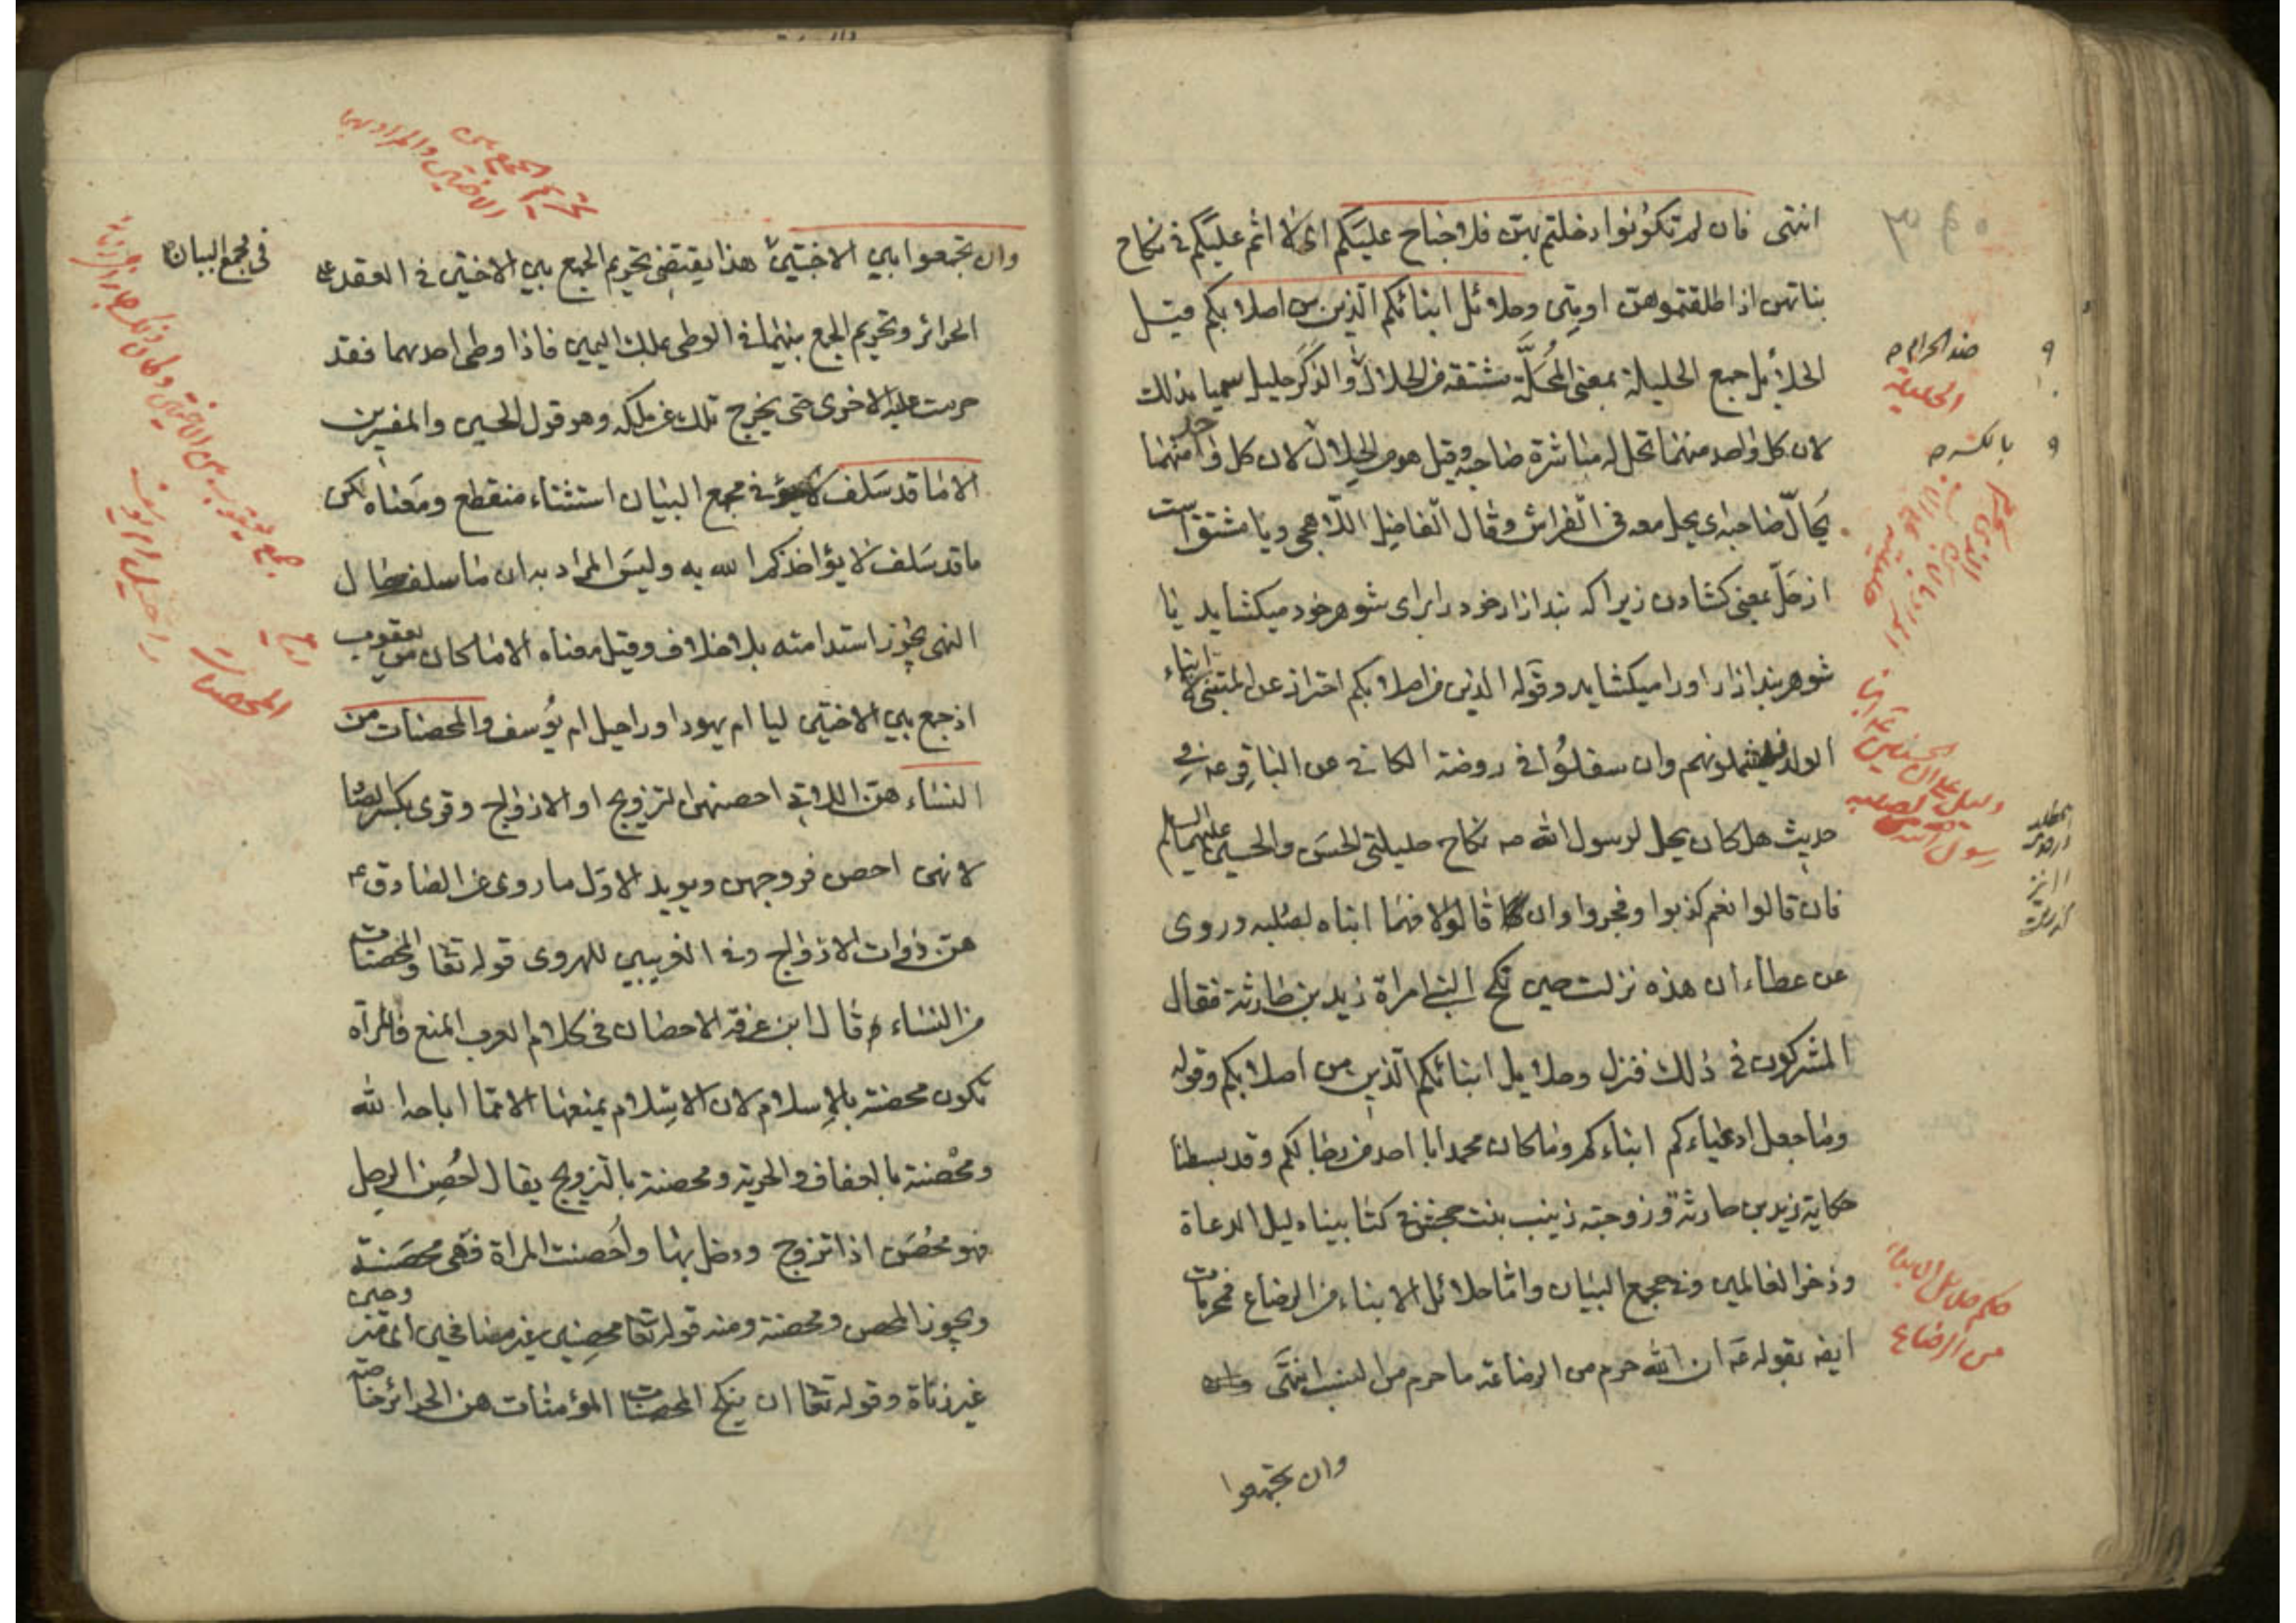 انتهى فان لم تكونوا دخلتم بهن فلا جناح عليكم اى لا اثم عليكم فى نكاح
بناتهن اذا طلقتموهن او متن وحلائل ابنائكم الذين من اصلابكم قيل
الحلائل جمع الحليلة بمعنى المُحَلَّة مشتقة من الحلال والذكر حليل سميا بذلك
لان كل واحد منهما تحل له مباشرة صاحبه وقيل هو من الحلال لان كل منهما
يُحالّ صاحبه اى يحل معه فى الفراش وقال الفاضل اللاهجى ويا مشتق است
از حَلّ بمعنى كشادن زيرا كه بند ازار خود را براى شوهر خود ميكشايد يا
شوهر بند ازار او را ميكشايد وقوله الذين من اصلابكم احتراز عن المتبنى لا ابناء
الولد فيشملونهم وان سفلوا فى روضة الكافى عن الباقر ع فى
حديث هل كان يحل لرسول الله ص نكاح حليلتى الحسن والحسين عليهما السلم
فان قالوا نعم كذبوا وفجروا وان قالوا لا فهما ابناه لصلبه وروى
عن عطاء ان هذه نزلت حين نكح النبى امراة زيد بن حارثة فقال
المشركون فى ذلك فنزل وحلايل ابنائكم الذين من اصلابكم وقوله
وما جعل ادعياءكم ابناءكم وما كان محمد ابا احد من رجالكم وقد بسطنا
حكاية زيد بن حارثة وزوجته زينب بنت جحش فى كتابينا دليل الدعاة
وذخر العالمين وفى مجمع البيان واما حلائل الابناء من الرضاع فمحرمات
ايضا بقوله ص ان الله حرم من الرضاعة ما حرم من النسب انتهى
وان تجمعوا
ضد الحرام م
الحليلة
بالكسر م
دليل على ان الحسنين ع ابنا
رسول الله لصلبه
حكم حلائل الابناء
من الرضاع
تحريم الجمع بين
الاختين والمراد بها
وان تجمعوا بين الاختين هذا يقتضى تحريم الجمع بين الاختين فى العقد على
فى مجمع البيان
الحرائر وتحريم الجمع بينهما فى الوطى بملك اليمين فاذا وطى احدهما فقد
حرمت عليه الاخرى حتى يخرج تلك عن ملكه وهو قول الحسن والمفسرين
الا ما قد سلف فى مجمع البيان استثناء منقطع ومعناه لكن
ما قد سلف لا يؤاخذكم الله به وليس المراد به ان ما سلف حال
النهى يجوز استدامته بلا خلاف وقيل معناه الا ما كان من يعقوب
اذ جمع بين الاختين ليا ام يهودا وراحيل ام يوسف والمحصنات من
النساء هن اللاتى احصنهن التزويج او الازواج وقرى بكسر الصاد
لانهن احصن فروجهن ويويد الاول ما روى عن الصادق ع
هن ذوات الازواج وفى الغريبين للهروى قوله تعا والمحصنات
من النساء قال ابن عرفة الاحصان فى كلام العرب المنع فالمراة
تكون محصنة بالاسلام لان الاسلام يمنعها الا مما اباحه الله
ومحصنة بالعفاف والحرية ومحصنة بالتزويج يقال احصن الرجل
فهو محصن اذا تزوج ودخل بها واحصنت المراة فهى محصنة
ويجوز المحصن ومحصنة ومنه قوله تعا محصنين غير مسافحين اى متزوجين
غير زناة وقوله تعا ان ينكح المحصنات المؤمنات هن الحرائر خاصة
جمع يعقوب بين الاختين
المحصنات